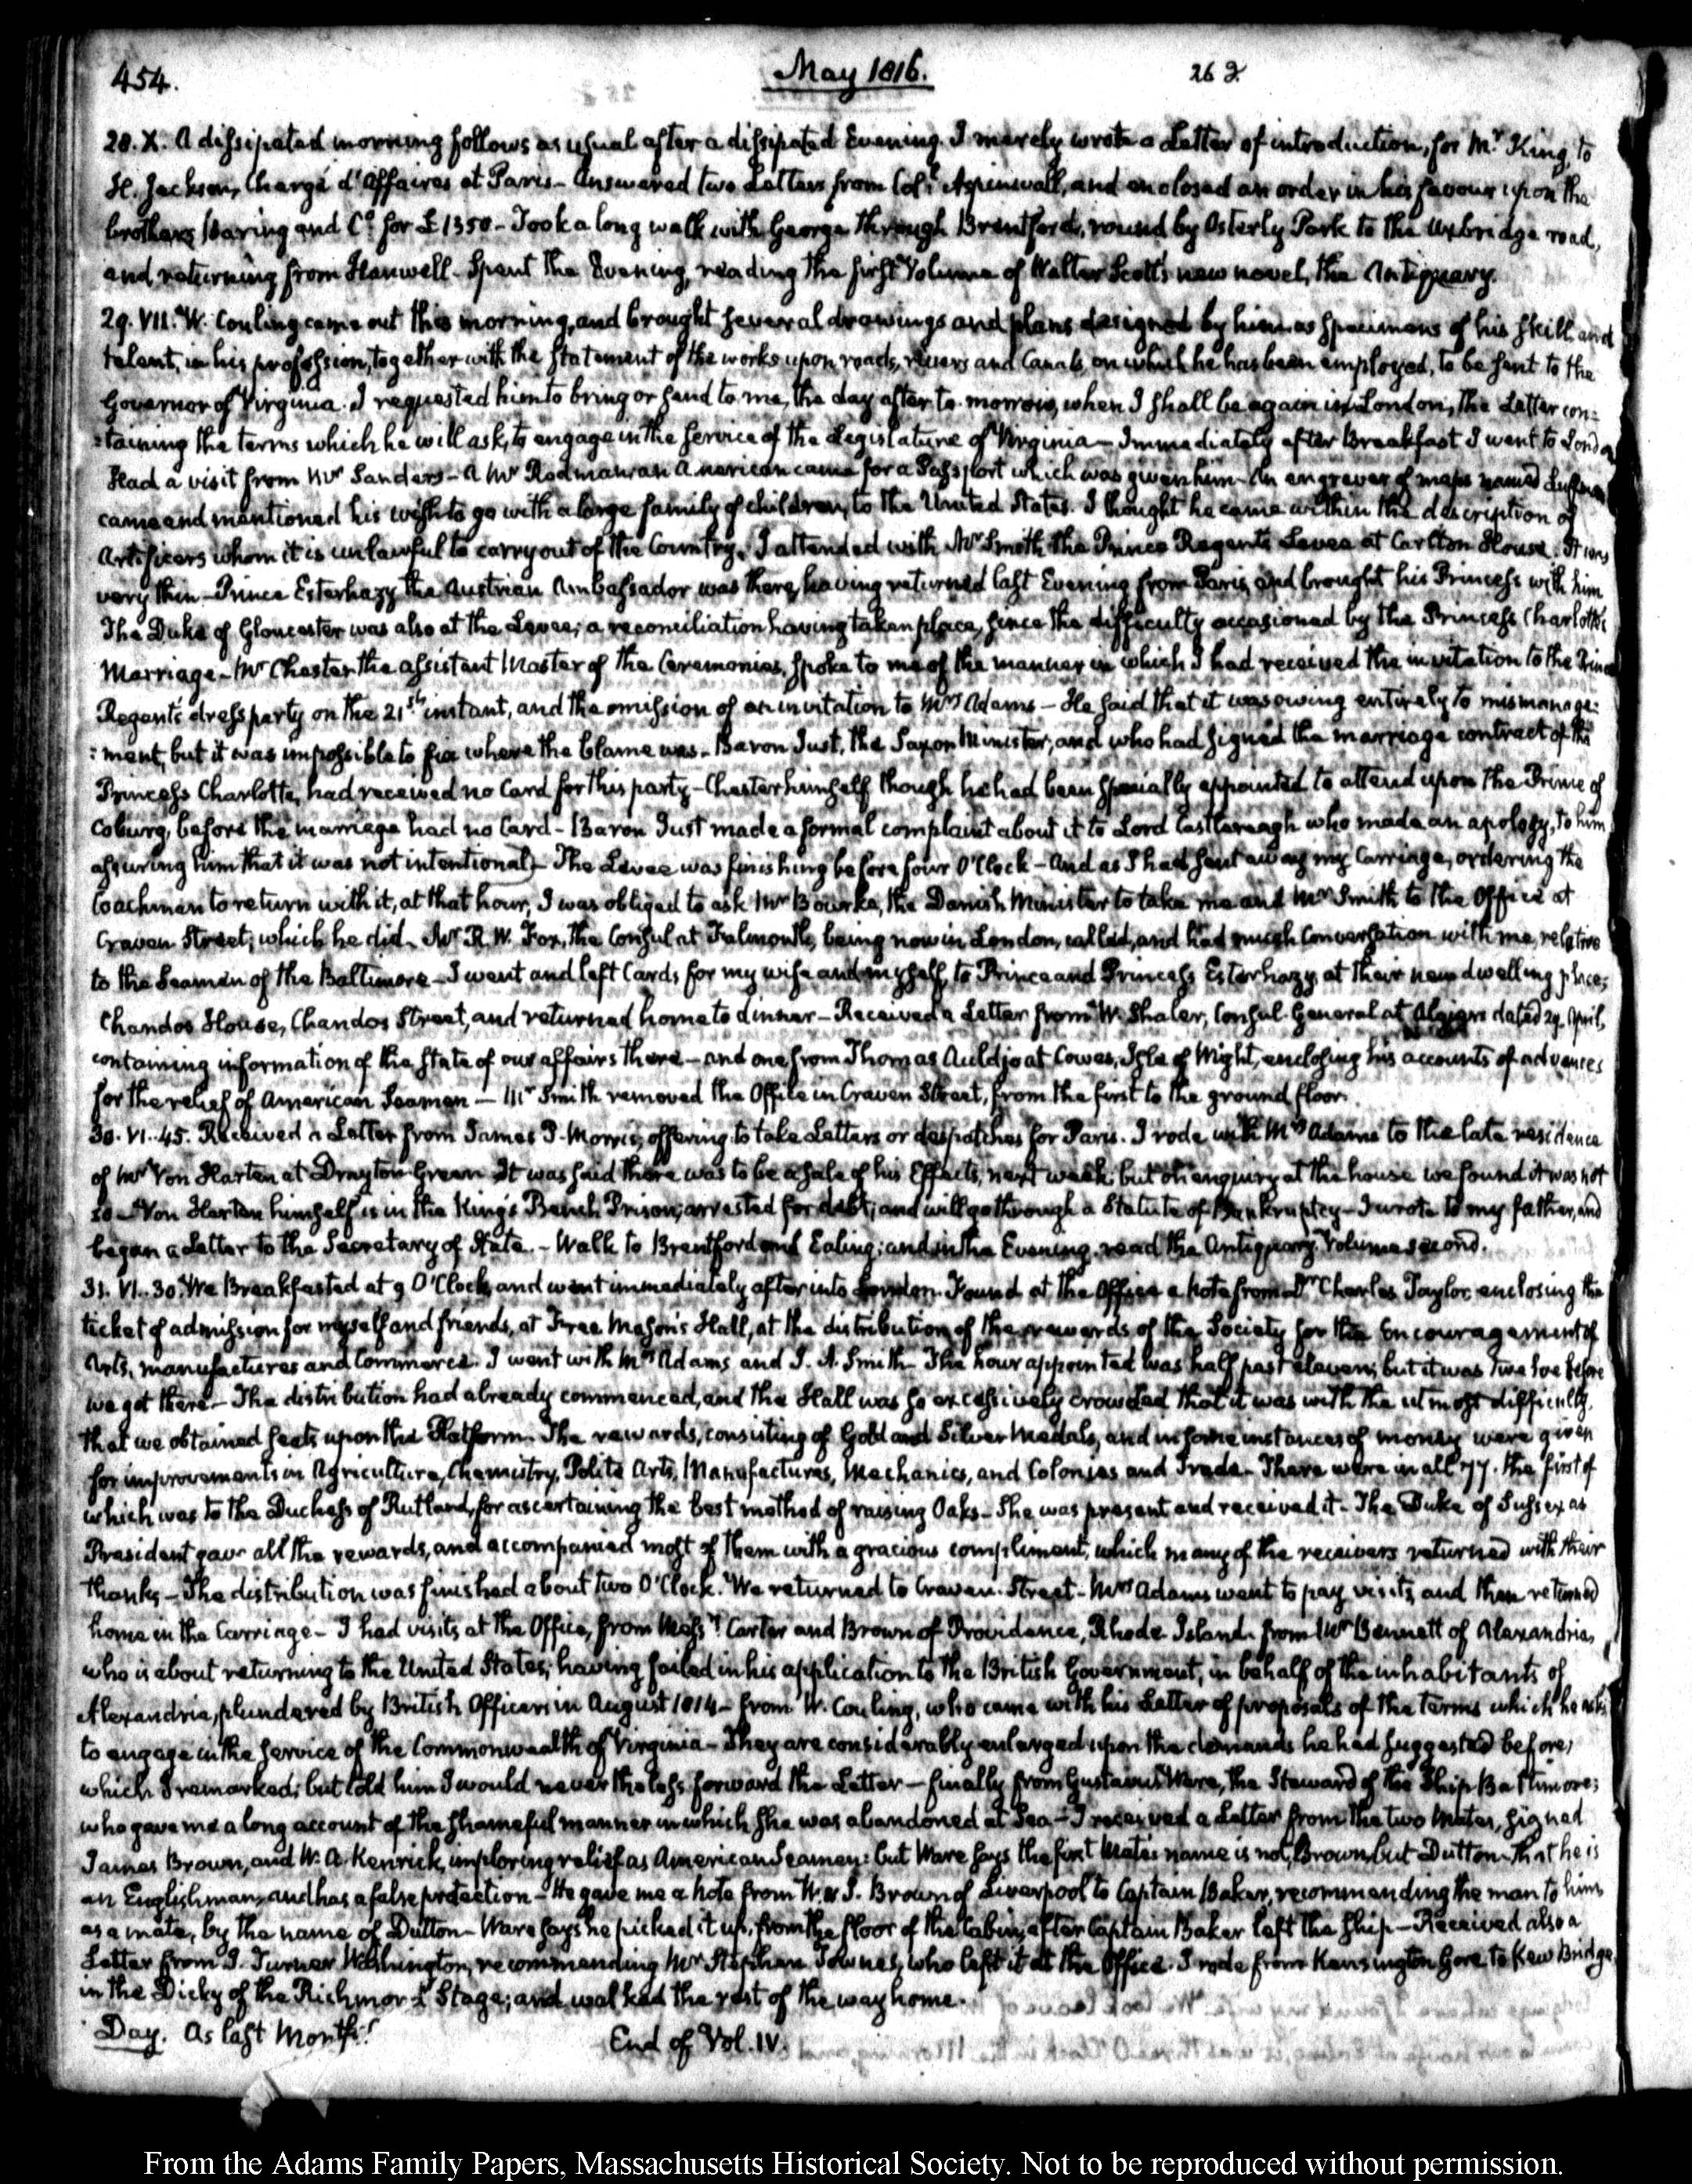 454.
May 1816.
262
28. X. A dissipated morning follows as usual after a dissipated Evening. I merely wrote a Letter of introduction, for Mr King, to
H. Jackson, Chargé d'Affaires at Paris - Answered two Letters from Col. Aspinwall, and enclosed an order in his favour upon the
brothers Baring and Co for £1350 - Took a long walk with George through Brentford, round by Osterly Park to the Uxbridge road,
and returning from Hanwell - Spent the Evening, reading the first Volume of Walter Scott's new novel, the Antiquary.
29. VII. W. Couling came out this morning, and brought several drawings and plans designed by him as specimens of his skill and
talent, in his profession, together with the statement of the works upon roads, rivers and Canals, on which he has been employed, to be sent to the
Governor of Virginia. I requested him to bring or send to me, the day after to-morrow, when I shall be again in London, the Letter con=
=taining the terms which he will ask, to engage in the service of the Legislature of Virginia - Immediately after Breakfast I went to London
Had a visit from Mr Sanders - A Mr Rodman an American came for a Passport which was given him - An engraver of maps named
came and mentioned his wish to go with a large family of children, to the United States. I thought he came within the description of
Artificers whom it is unlawful to carry out of the Country. I attended with Mr Smith the Prince Regent's Levee at Carlton House. It was
very thin - Prince Esterhazy the Austrian Ambassador was there, having returned last Evening from Paris, and brought his Princess with him
The Duke of Gloucester was also at the Levee; a reconciliation having taken place, since the difficulty occasioned by the Princess Charlotte's
Marriage - Mr Chester the assistant Master of the Ceremonies, spoke to me of the manner in which I had received the invitation to the Prince
Regent's dress party on the 21st instant, and the omission of an invitation to Mrs Adams - He said that it was owing entirely to mismanage=
=ment, but it was impossible to fix where the blame was - Baron Just, the Saxon Minister, and who had signed the marriage contract of the
Princess Charlotte, had received no Card for this party - Chester himself though he had been specially appointed to attend upon the Prince of
Coburg, before the marriage had no Card - Baron Just made a formal complaint about it to Lord Castlereagh who made an apology, to him
assuring him that it was not intentional - The Levee was finishing before four O'Clock - And as I had sent away my Carriage, ordering the
Coachman to return with it, at that hour, I was obliged to ask Mr Bourke, the Danish Minister to take me and Mr Smith to the Office at
Craven Street; which he did - Mr R. W. Fox, the Consul at Falmouth, being now in London, called, and had much Conversation with me, relative
to the Seamen of the Baltimore - I went and left Cards for my wife and myself, to Prince and Princess Esterhazy, at their new dwelling place;
Chandos House, Chandos Street, and returned home to dinner - Received a Letter from W. Shaler, Consul General at Algiers dated 29. April,
containing information of the state of our affairs there - and one from Thomas Auldjo at Cowes, Isle of Wight, enclosing his accounts of advances
for the relief of American Seamen - Mr Smith removed the Office in Craven Street, from the first to the ground floor.
30. VI. 45. Received a Letter from James P. Morris, offering to take Letters or despatches for Paris. I rode with Mrs Adams to the late residence
of Mr Von Harten at Drayton Green It was said there was to be a sale of his Effects, next week; but on enquiry at the house we found it was not
so - Von Harten himself is in the King's Bench Prison; arrested for debt; and will go through a Statute of Bankruptcy - I wrote to my father, and
began a Letter to the Secretary of State. - Walk to Brentford and Ealing; and in the Evening, read the Antiquary Volume second.
31. VI. 30. We Breakfasted at 9 O'Clock, and went immediately after into London. Found at the Office a note from Dr Charles Taylor enclosing the
ticket of admission for myself and friends, at Free Mason's Hall, at the distribution of the rewards of the Society for the Encouragement of
Arts, manufactures and Commerce. I went with Mrs Adams and J. A. Smith - The hour appointed was half past eleven; but it was twelve before
we got there - The distribution had already commenced, and the Hall was so excessively crowded that it was with the utmost difficulty,
that we obtained seats upon the Platform. The rewards, consisting of Gold and Silver Medals, and in some instances of money were given
for improvements in Agriculture, Chemistry, Polite Arts, Manufactures, Mechanics, and Colonies and Trade - There were in all 77. the first of
which was to the Duchess of Rutland, for ascertaining the best method of raising Oaks - She was present and received it - The Duke of Sussex as
President gave all the rewards, and accompanied most of them with a gracious compliment, which many of the receivers returned with their
thanks - The distribution was finished about two O'Clock. We returned to Craven Street - Mrs Adams went to pay visits, and then returned
home in the Carriage - I had visits at the Office, from Messrs Carter and Brown of Providence, Rhode Island - from Mr Bennett of Alexandria,
who is about returning to the United States; having failed in his application to the British Government, in behalf of the inhabitants of
Alexandria, plundered by British Officers in August 1814 - from W. Couling, who came with his Letter of proposals of the terms which he asks
to engage in the service of the Commonwealth of Virginia - They are considerably enlarged upon the demands he had suggested before;
which I remarked; but told him I would nevertheless forward the Letter - finally from Gustavus Ware, the Steward of the Ship Baltimore;
who gave me a long account of the shameful manner in which she was abandoned at Sea - I received a Letter from the two Mates, signed
James Brown, and W. A. Kenrick, imploring relief as American Seamen: but Ware says the first Mate's name is not Brown, but Dutton - that he is
an Englishman, and has a false protection - He gave me a note from W. & J. Brown of Liverpool to Captain Baker, recommending the man to him
as a mate, by the name of Dutton - Ware says he picked it up, from the floor of the Cabin, after Captain Baker left the ship - Received also a
Letter from J. Turner Washington, recommending Mr Stephen Townes, who left it at the Office. I rode from Kensington Gore to Kew Bridge,
in the Dicky of the Richmond Stage; and walked the rest of the way home.
Day. As last Month!
End of Vol. IV.
From the Adams Family Papers, Massachusetts Historical Society. Not to be reproduced without permission.